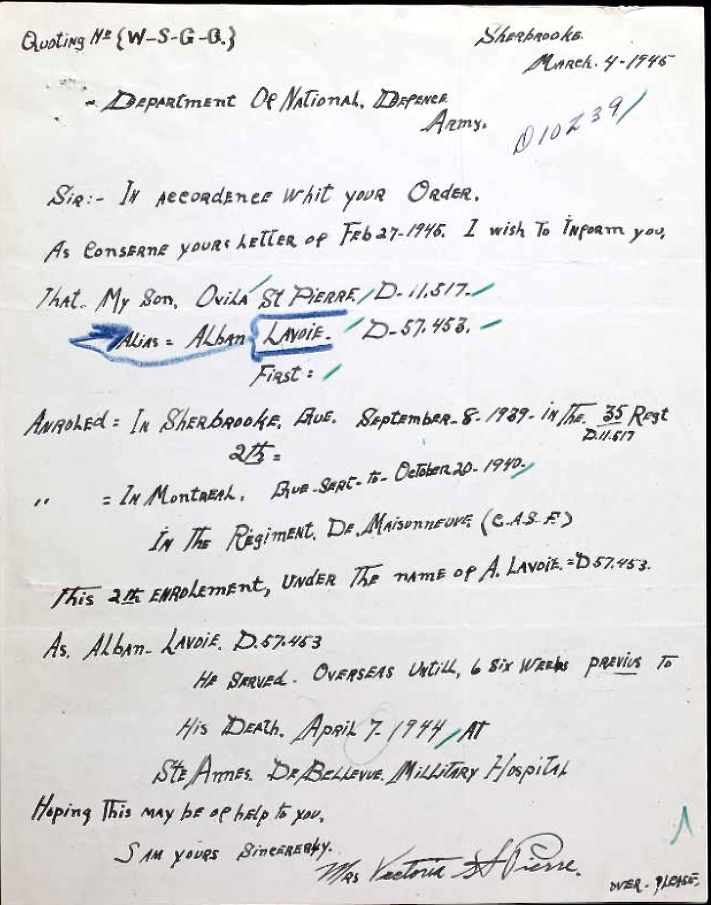 Quoting No {W-S-G-Q.}
Sherbrooke.
March. 4-1945
- Department Of National. Defence
Army.
D10239/
Sir:- In accordence whit your Order.
As conserne yours letter of Feb 27-1945. I wish to inform you,
That. My Son. Ovila St Pierre. D-11.517.
Alias = Alban {Lavoie. D-57.453.
First:
Anroled = In Sherbrooke. Que. September-8-1939- in the. 35 Regt
D.11.517
2th =
,, = In Montreal. Que. Sept-to-October 20-1940-
In The Regiment. De. Maisonneuve. (C.A.S.F.)
This 2th enrolement, under the name of A. Lavoie. = D57.453.
As. Alban- Lavoie. D.57.453
He served. overseas untill, 6 six weeks previus to
His Death. April 7-1944 at
Ste Annes. De Bellevue. Millitary Hospital
Hoping this may be of help to you,
I am yours sincereby.
Mrs Victoria St Pierre.
over-please-